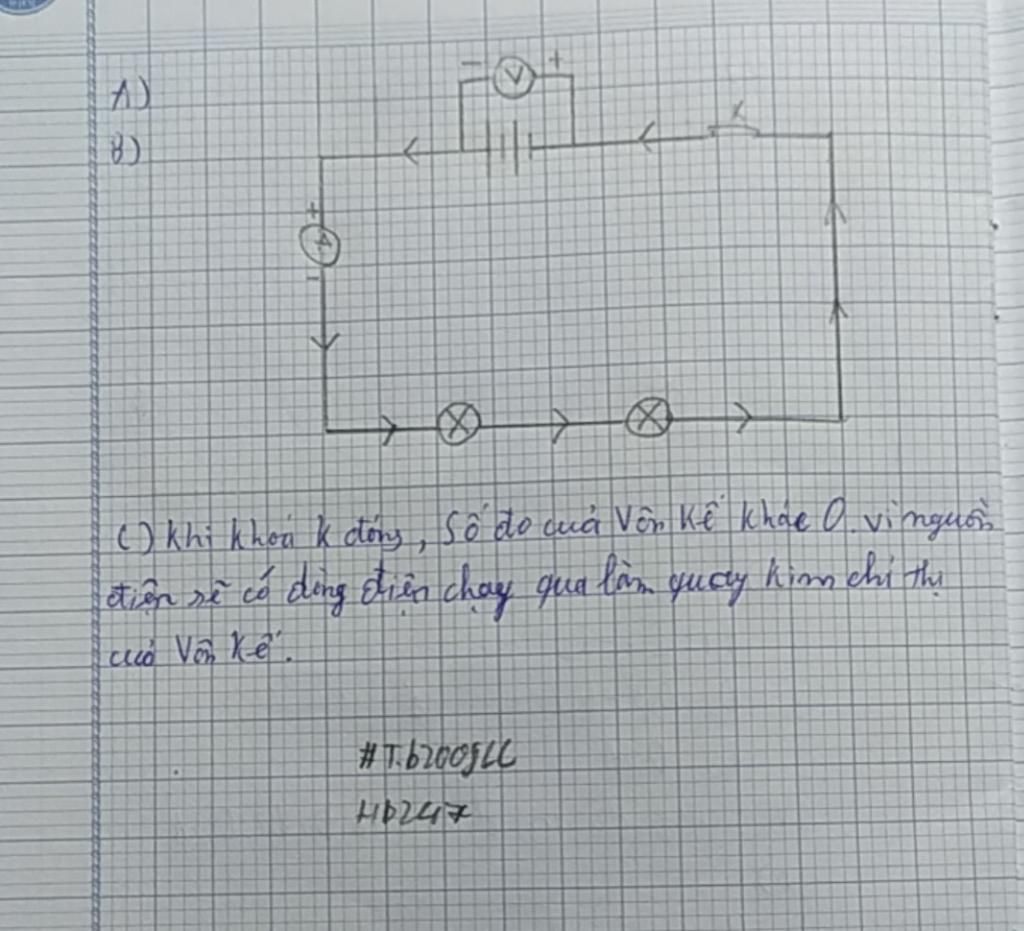 A)
B)
- V +
K
+
A
-
C) khi khoá k đóng, Số đo cuả Vôn Kế khác 0. vì nguồn
điện sẽ có dòng điện chạy qua làm quay kim chỉ thị
cuả Vôn Kế.
#T.b2005LC
Hb247